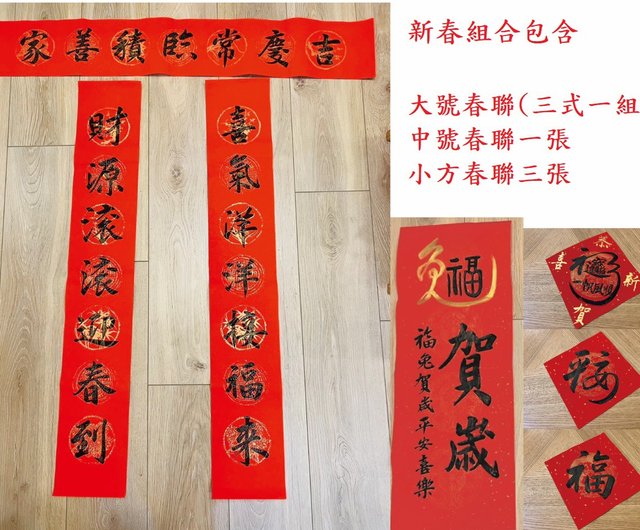 吉慶常臨積善家
喜氣洋洋接福來
財源滾滾迎春到
新春組合包含
大號春聯(三式一組
中號春聯一張
小方春聯三張
福兔
賀歲
福兔賀歲平安喜樂
恭賀新喜
平安
福